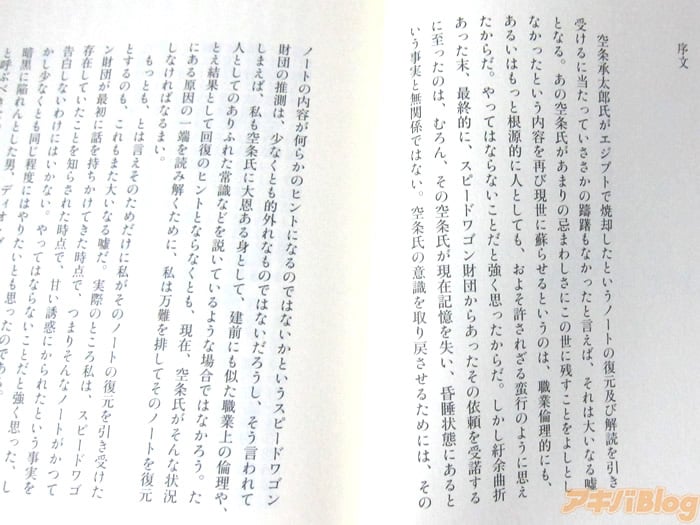 序文
空条承太郎氏がエジプトで焼却したというノートの復元及び解読を引き
受けるに当たっていささかの躊躇もなかったと言えば、それは大いなる嘘
となる。あの空条氏があまりの忌まわしさにこの世に残すことをよしとし
なかったという内容を再び現世に蘇らせるというのは、職業倫理的にも、
あるいはもっと根源的に人としても、およそ許されざる蛮行のように思え
たからだ。やってはならないことだと強く思ったからだ。しかし紆余曲折
あった末、最終的に、スピードワゴン財団からあったその依頼を受諾する
に至ったのは、むろん、その空条氏が現在記憶を失い、昏睡状態にあると
いう事実と無関係ではない。空条氏の意識を取り戻させるためには、その
ノートの内容が何らかのヒントになるのではないかというスピードワゴン
財団の推測は、少なくとも的外れなものではないだろうし、そう言われて
しまえば、私も空条に大恩ある身として、建前にも似た職業上の倫理や、
人としてのありふれた常識などを説いているような場合ではなかろう。た
とえ結果として回復のヒントとならなくとも、現在、空条氏がそんな状況
にある原因の一端を読み解くために、私は万難を排してそのノートを復元
しなければなるまい。
もっとも、とは言えそのためだけに私がそのノートの復元を引き受けた
とするのも、これもまた大いなる嘘だ。実際のところ私は、スピードワゴ
ン財団が最初に話を持ちかけてきた時点で、つまりそんなノートがかつて
存在していたことを知らされた時点で、甘い誘惑にかられたという事実を
告白しないわけにはいかない。やってはならないことだと強く思った、し
かし少なくとも同じ程度にはやりたいとも思ったのである。
暗黒に陥れんとした男、ディオ
と呼ぶべき
アキバBlog